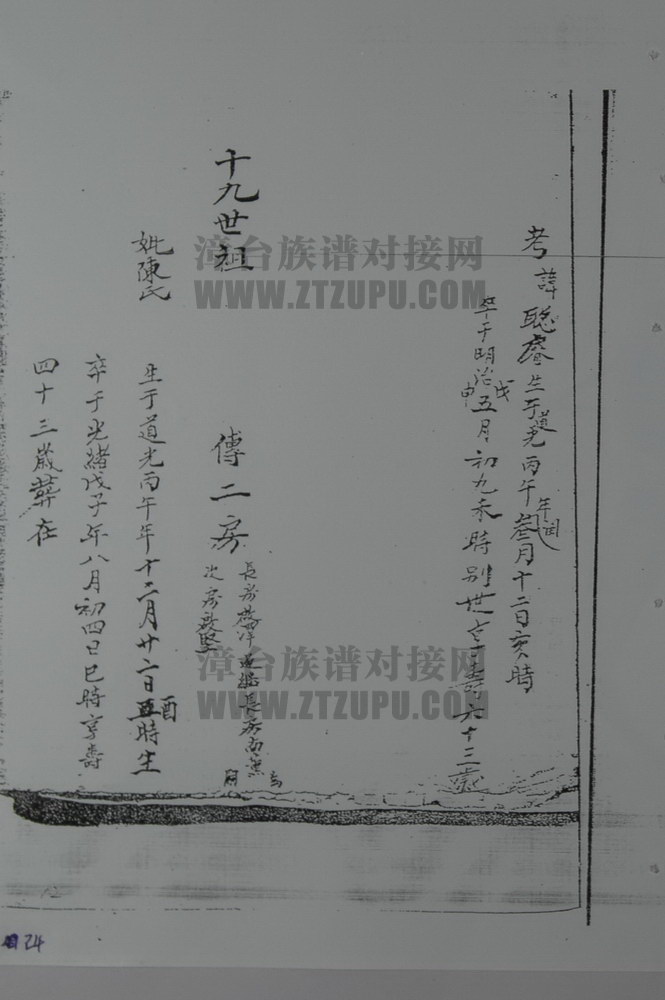 考諱聰睿生于道光丙午年閏叁月十二日亥時
卒于明治戊申五月初九未時別世享壽六十三歲
十九世祖 傳二房
長房 長房
次房啟堅
妣陳氏
生于道光丙午年十二月廿六日酉時生
卒于光緒戊子年八月初四日巳時享壽
四十三歲葬在
漳台族谱对接网
WWW.ZTZUPU.COM
漳台族谱对接网
WWW.ZTZUPU.COM
24